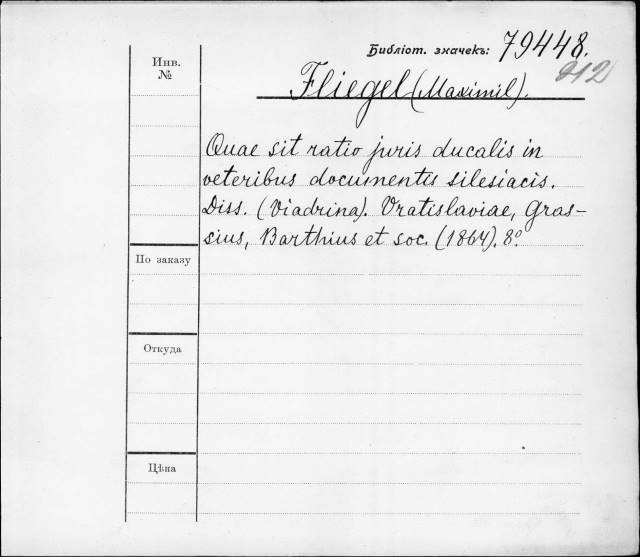 Библіот. значекъ: 79448.
212
Инв.
№
Fliegel (Maximil).
Quae sit ratio juris ducalis in
veteribus documentis silesiacis.
Diss. (Viadrina). Vratislaviae, Gras-
sius, Barthius et soc. (1864). 8º
По заказу
Откуда
Цѣна